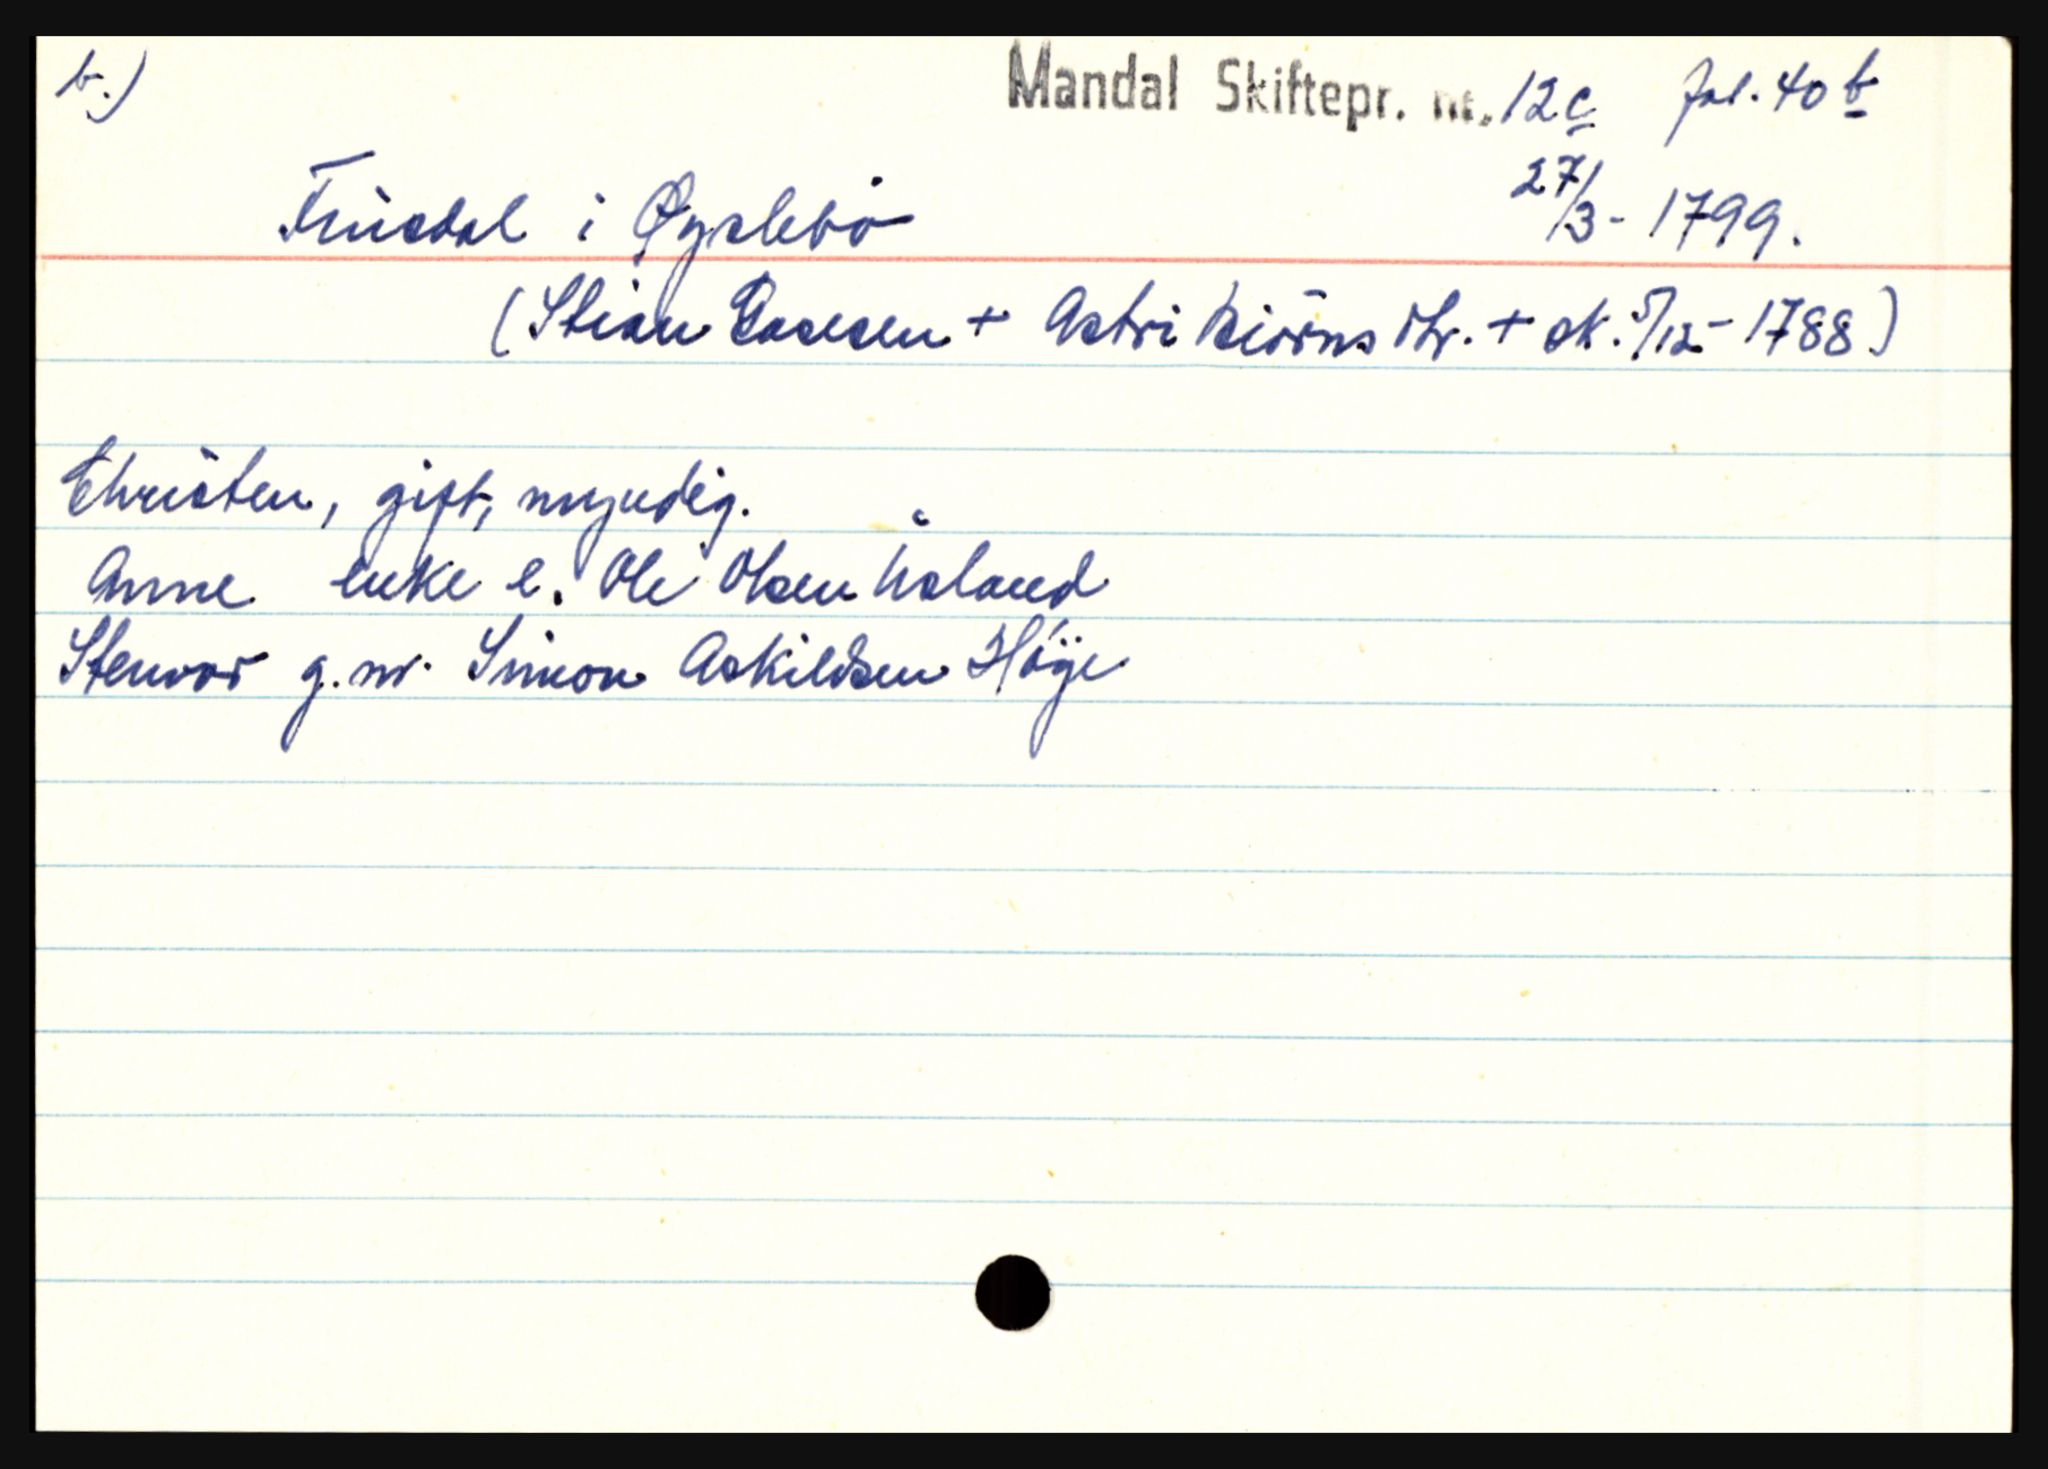 b.) Mandal Skiftepr. nr. 12c fol. 40 b
27/3 - 1799.
Fuusdal i Øyslebö
(Stian Aasesen + Astri Biörns dtr. + sk. 5/12 - 1788)
Christen, gift, myndig.
Anne enke e. Ole Olsen Usland
Stenvor g. m. Simon Askildsen Höye